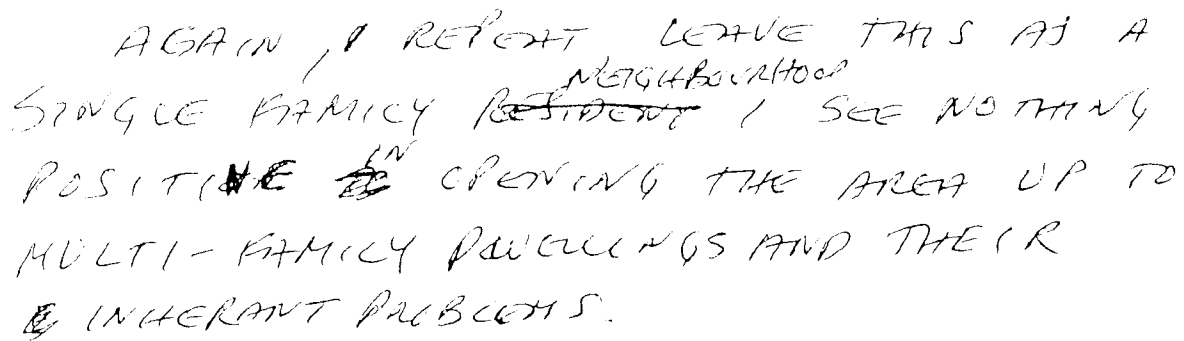 AGAIN, I REPEAT LEAVE THIS AS A
SINGLE FAMILY NEIGHBOURHOOD I SEE NOTHING
POSITIVE IN OPENING THE AREA UP TO
MULTI-FAMILY DWELLINGS AND THEIR
INHERANT PROBLEMS.